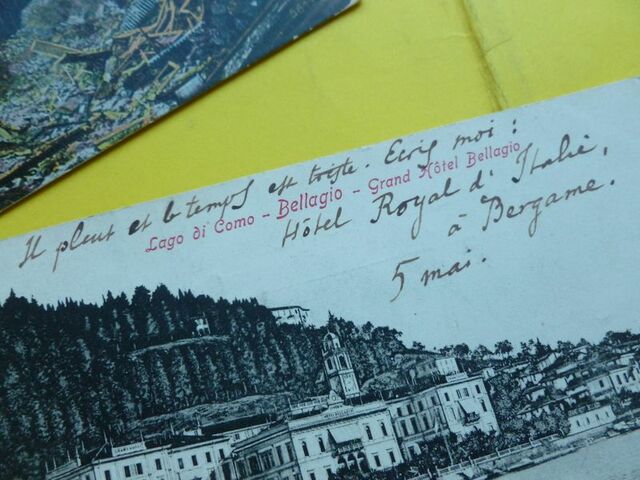 Il pleut et le temps est triste. Ecris moi :
Lago di Como - Bellagio - Grand Hôtel Bellagio
Hôtel Royal d'Italie,
à Bergame.
5 mai.